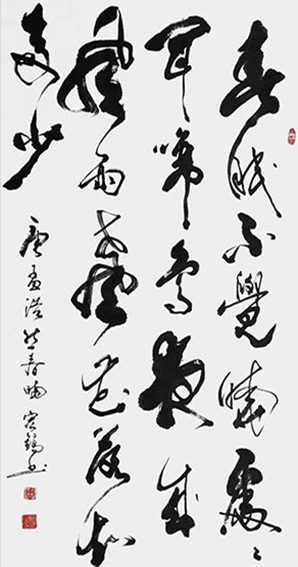 春眠不覺曉處〻
聞啼鳥夜來
風雨聲花落知
多少
唐孟浩然春曉 書